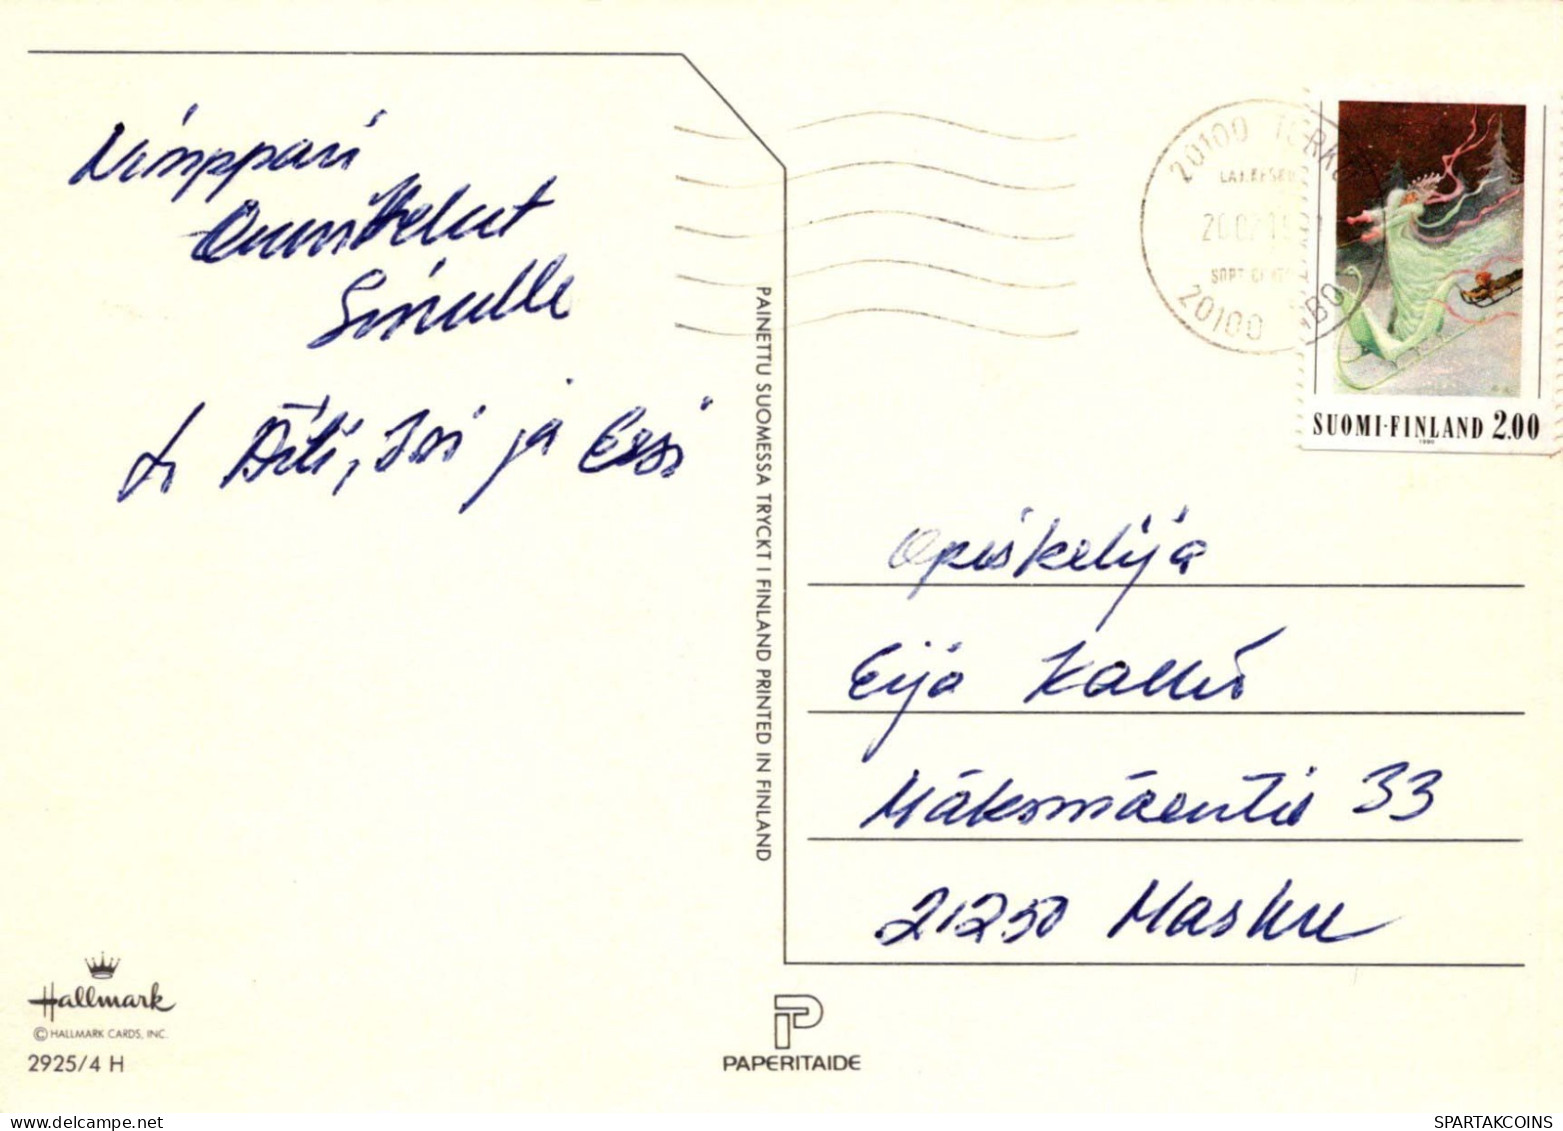 Nimppari
Onnittelut
Sinulle
T. Äiti, Isi ja Essi
PAINETTU SUOMESSA TRYCKT I FINLAND PRINTED IN FINLAND
20100 TURKU
20100 ÅBO
SUOMI-FINLAND 2.00
1990
Opiskelija
Eija Kallio
Mäksmäentie 33
21250 Masku
Hallmark
© HALLMARK CARDS, INC.
2925/4 H
PAPERITAIDE
SPARTAKCOINS